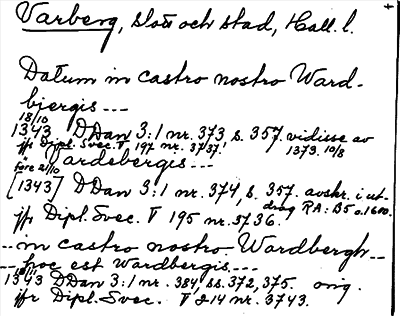 Varberg, slott och stad, Hall. l.
Datum in castro nostro Ward-
biergis ---
18/10
1343 DDan 3:1 nr. 373, s. 357. vidisse av
jfr Dipl. Svec. V 197 nr. 3737. 1373. 10/8
Vardebergis ---
före 21/10
[1343] DDan 3:1 nr. 374, s. 357. avskr. i ut-
drag RA: B5 o. 1600.
jfr Dipl. Svec. V 195 nr. 3736.
-- in castro nostro Wardbergh --
-- hoc est Wardbergis ---
1343 DDan 3:1 nr. 384, ss. 372, 375. orig.
jfr Dipl. Svec. V 214 nr. 3743.